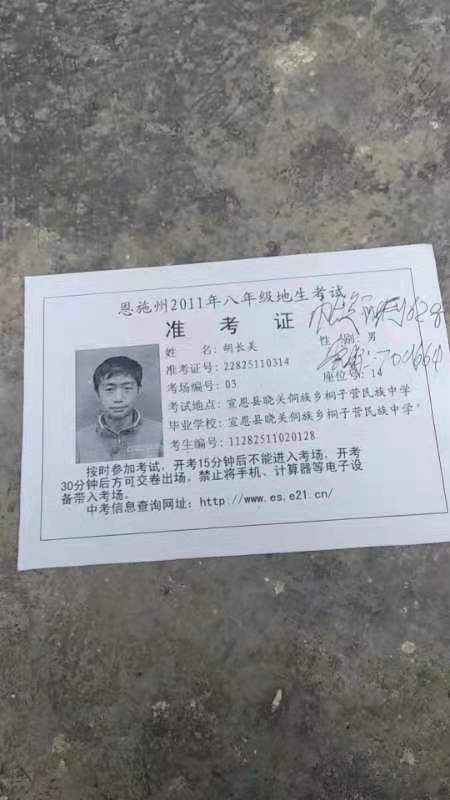 恩施州2011年八年级地生考试
准考证
姓 名：胡长美
性 别：男
准考证号：22825110314
考场编号：03
座位号：14
考试地点：宣恩县晓关侗族乡桐子营民族中学
毕业学校：宣恩县晓关侗族乡桐子营民族中学
考生编号：11282511020128
按时参加考试，开考15分钟后不能进入考场，开考
30分钟后方可交卷出场，禁止将手机、计算器等电子设
备带入考场。
中考信息查询网址：http://www.es.e21.cn/